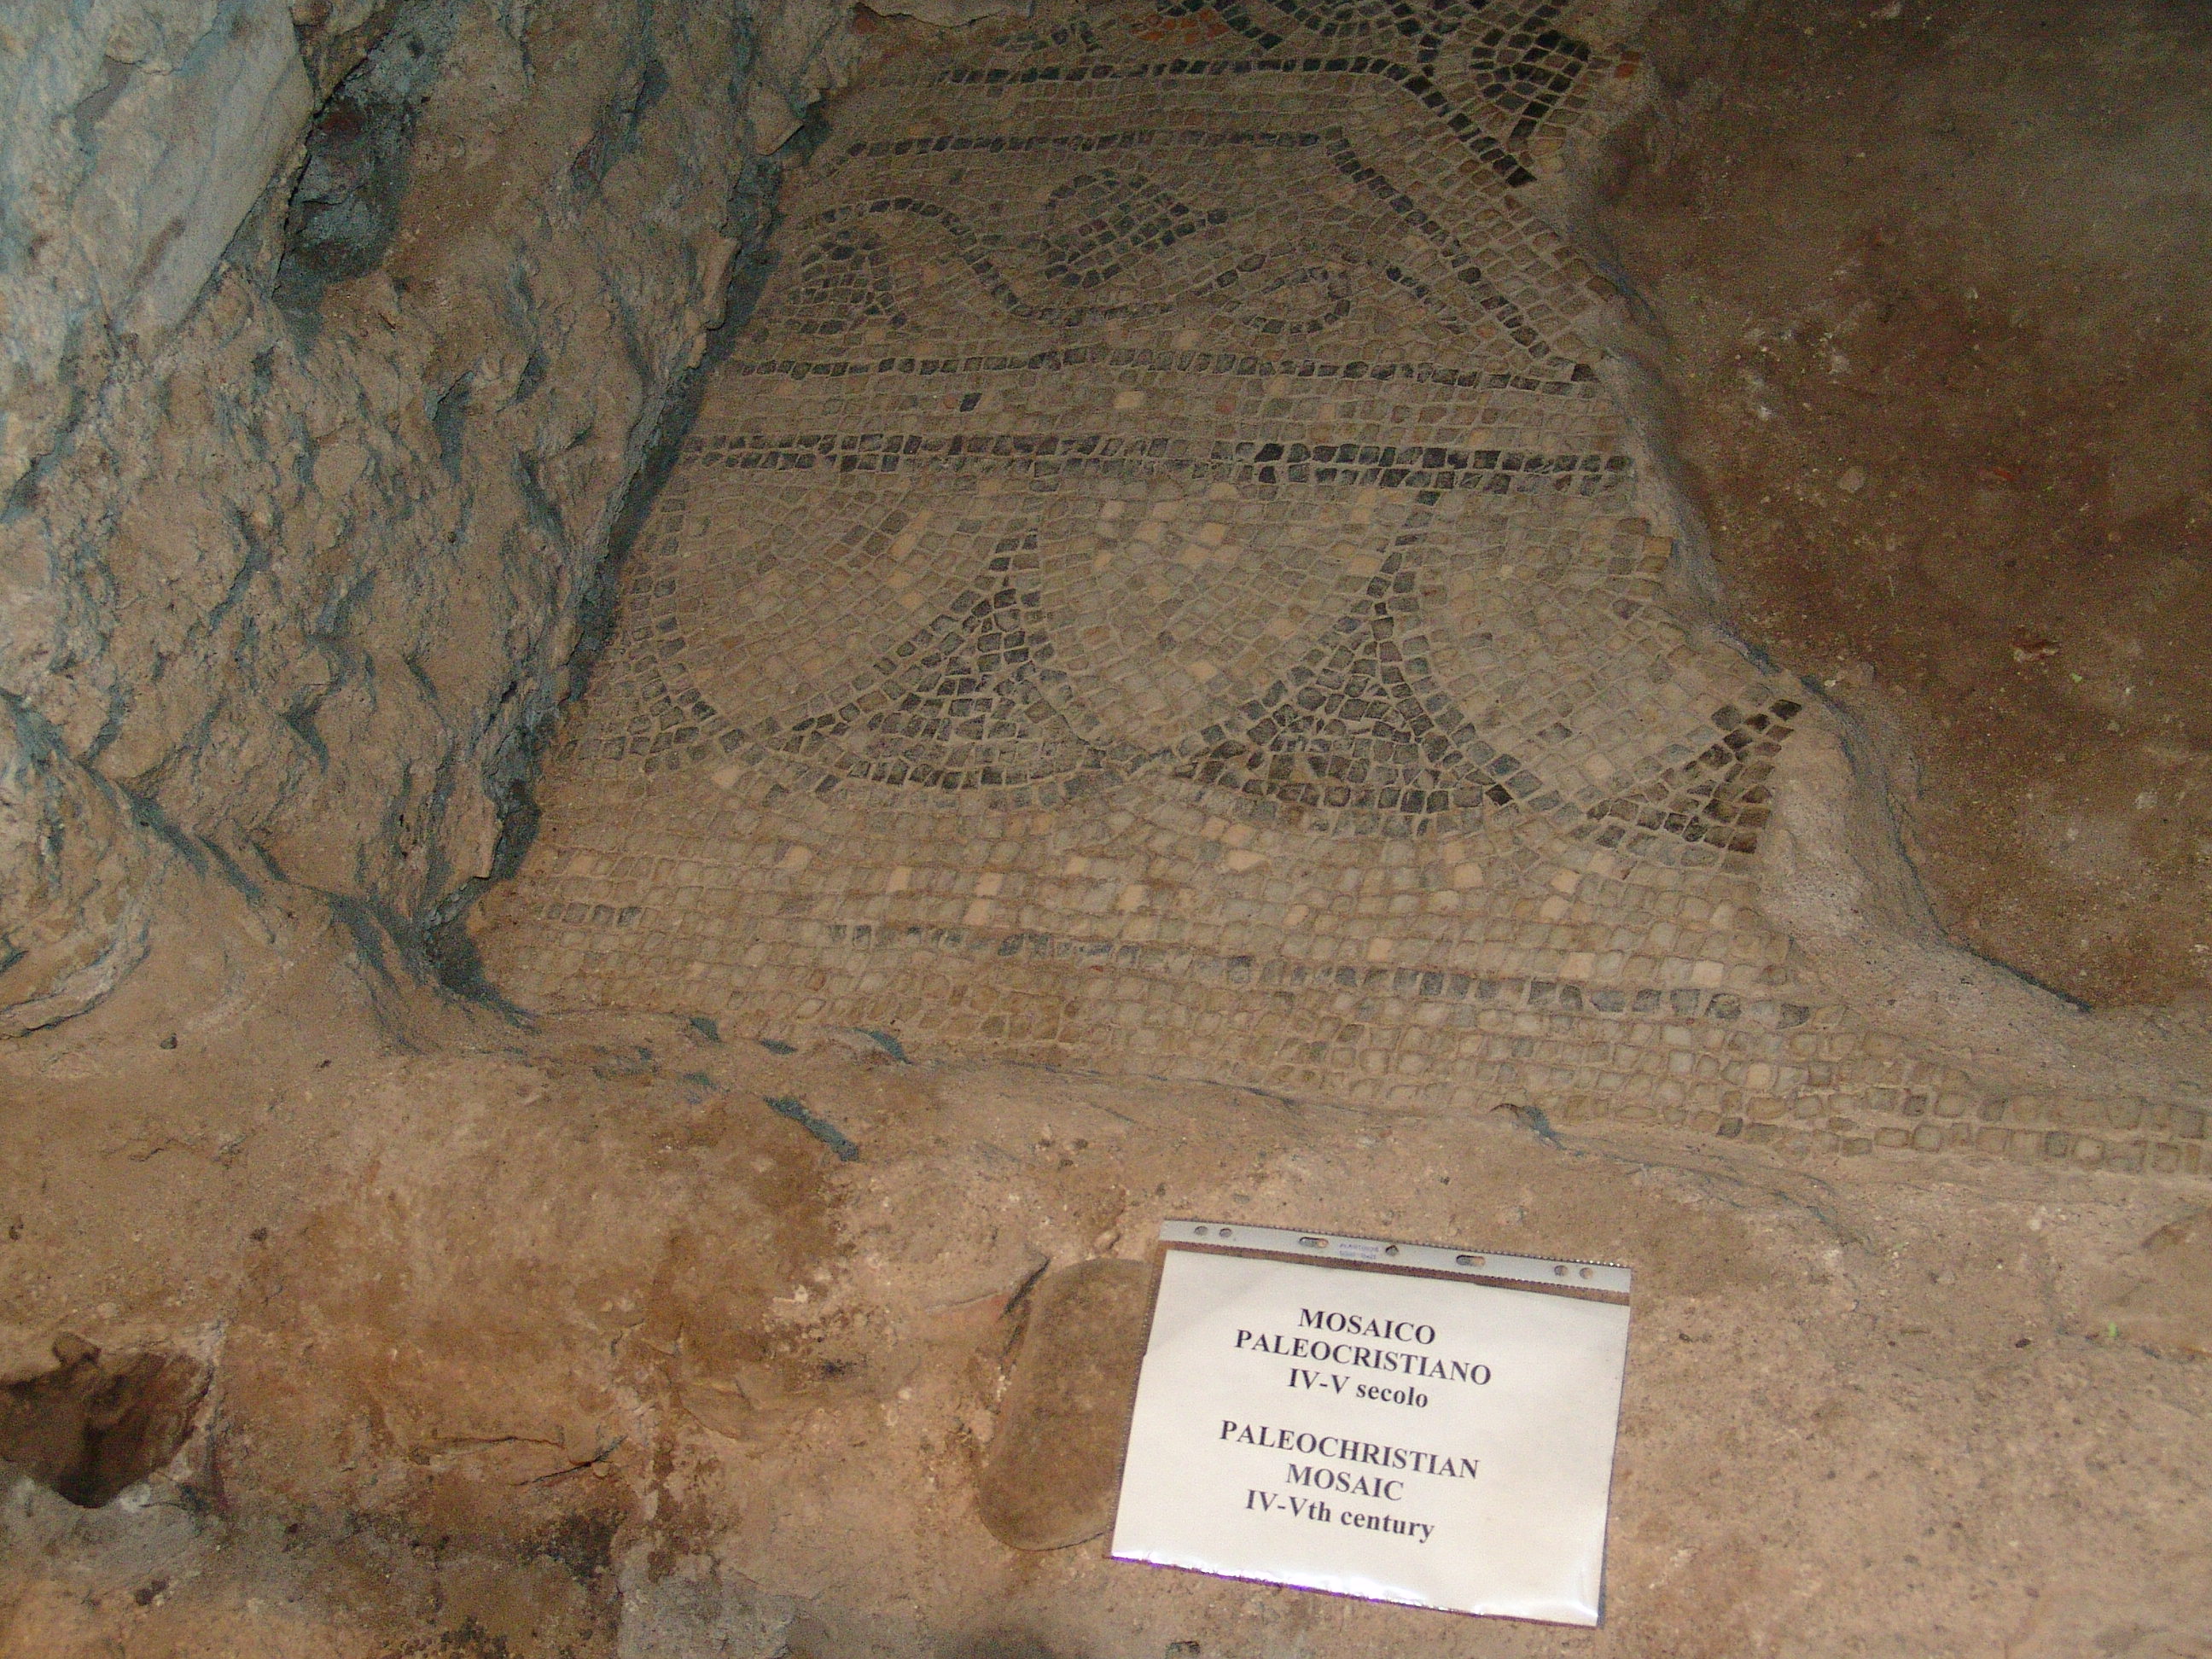 MOSAICO
PALEOCRISTIANO
IV-V secolo
PALEOCHRISTIAN
MOSAIC
IV-Vth century